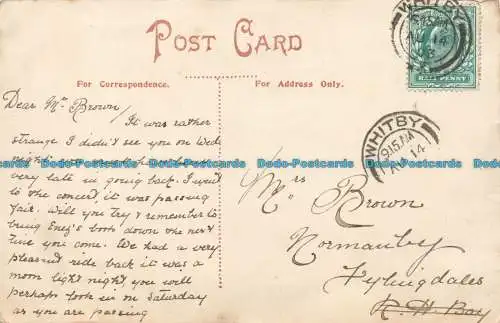 POST CARD
For Correspondence.
For Address Only.
WHITBY
HALF PENNY
WHITBY
8.15 PM
AU 14
Dear Mrs Brown/
It was rather
strange I didn't see you on Wed
night
very late in going back. I went
to the concert, it was passing
fair. Will you try & remember to
bring Eney's book down the next
time you come. We had a very
pleasant ride back it was a
moon light night, you will
perhaps look in on Saturday
as you are passing
Mrs Brown
Normanby
Fylingdales
R. H. Bay
Dodo-Postcards Dodo-Postcards Dodo-Postcards Dodo-Postcards